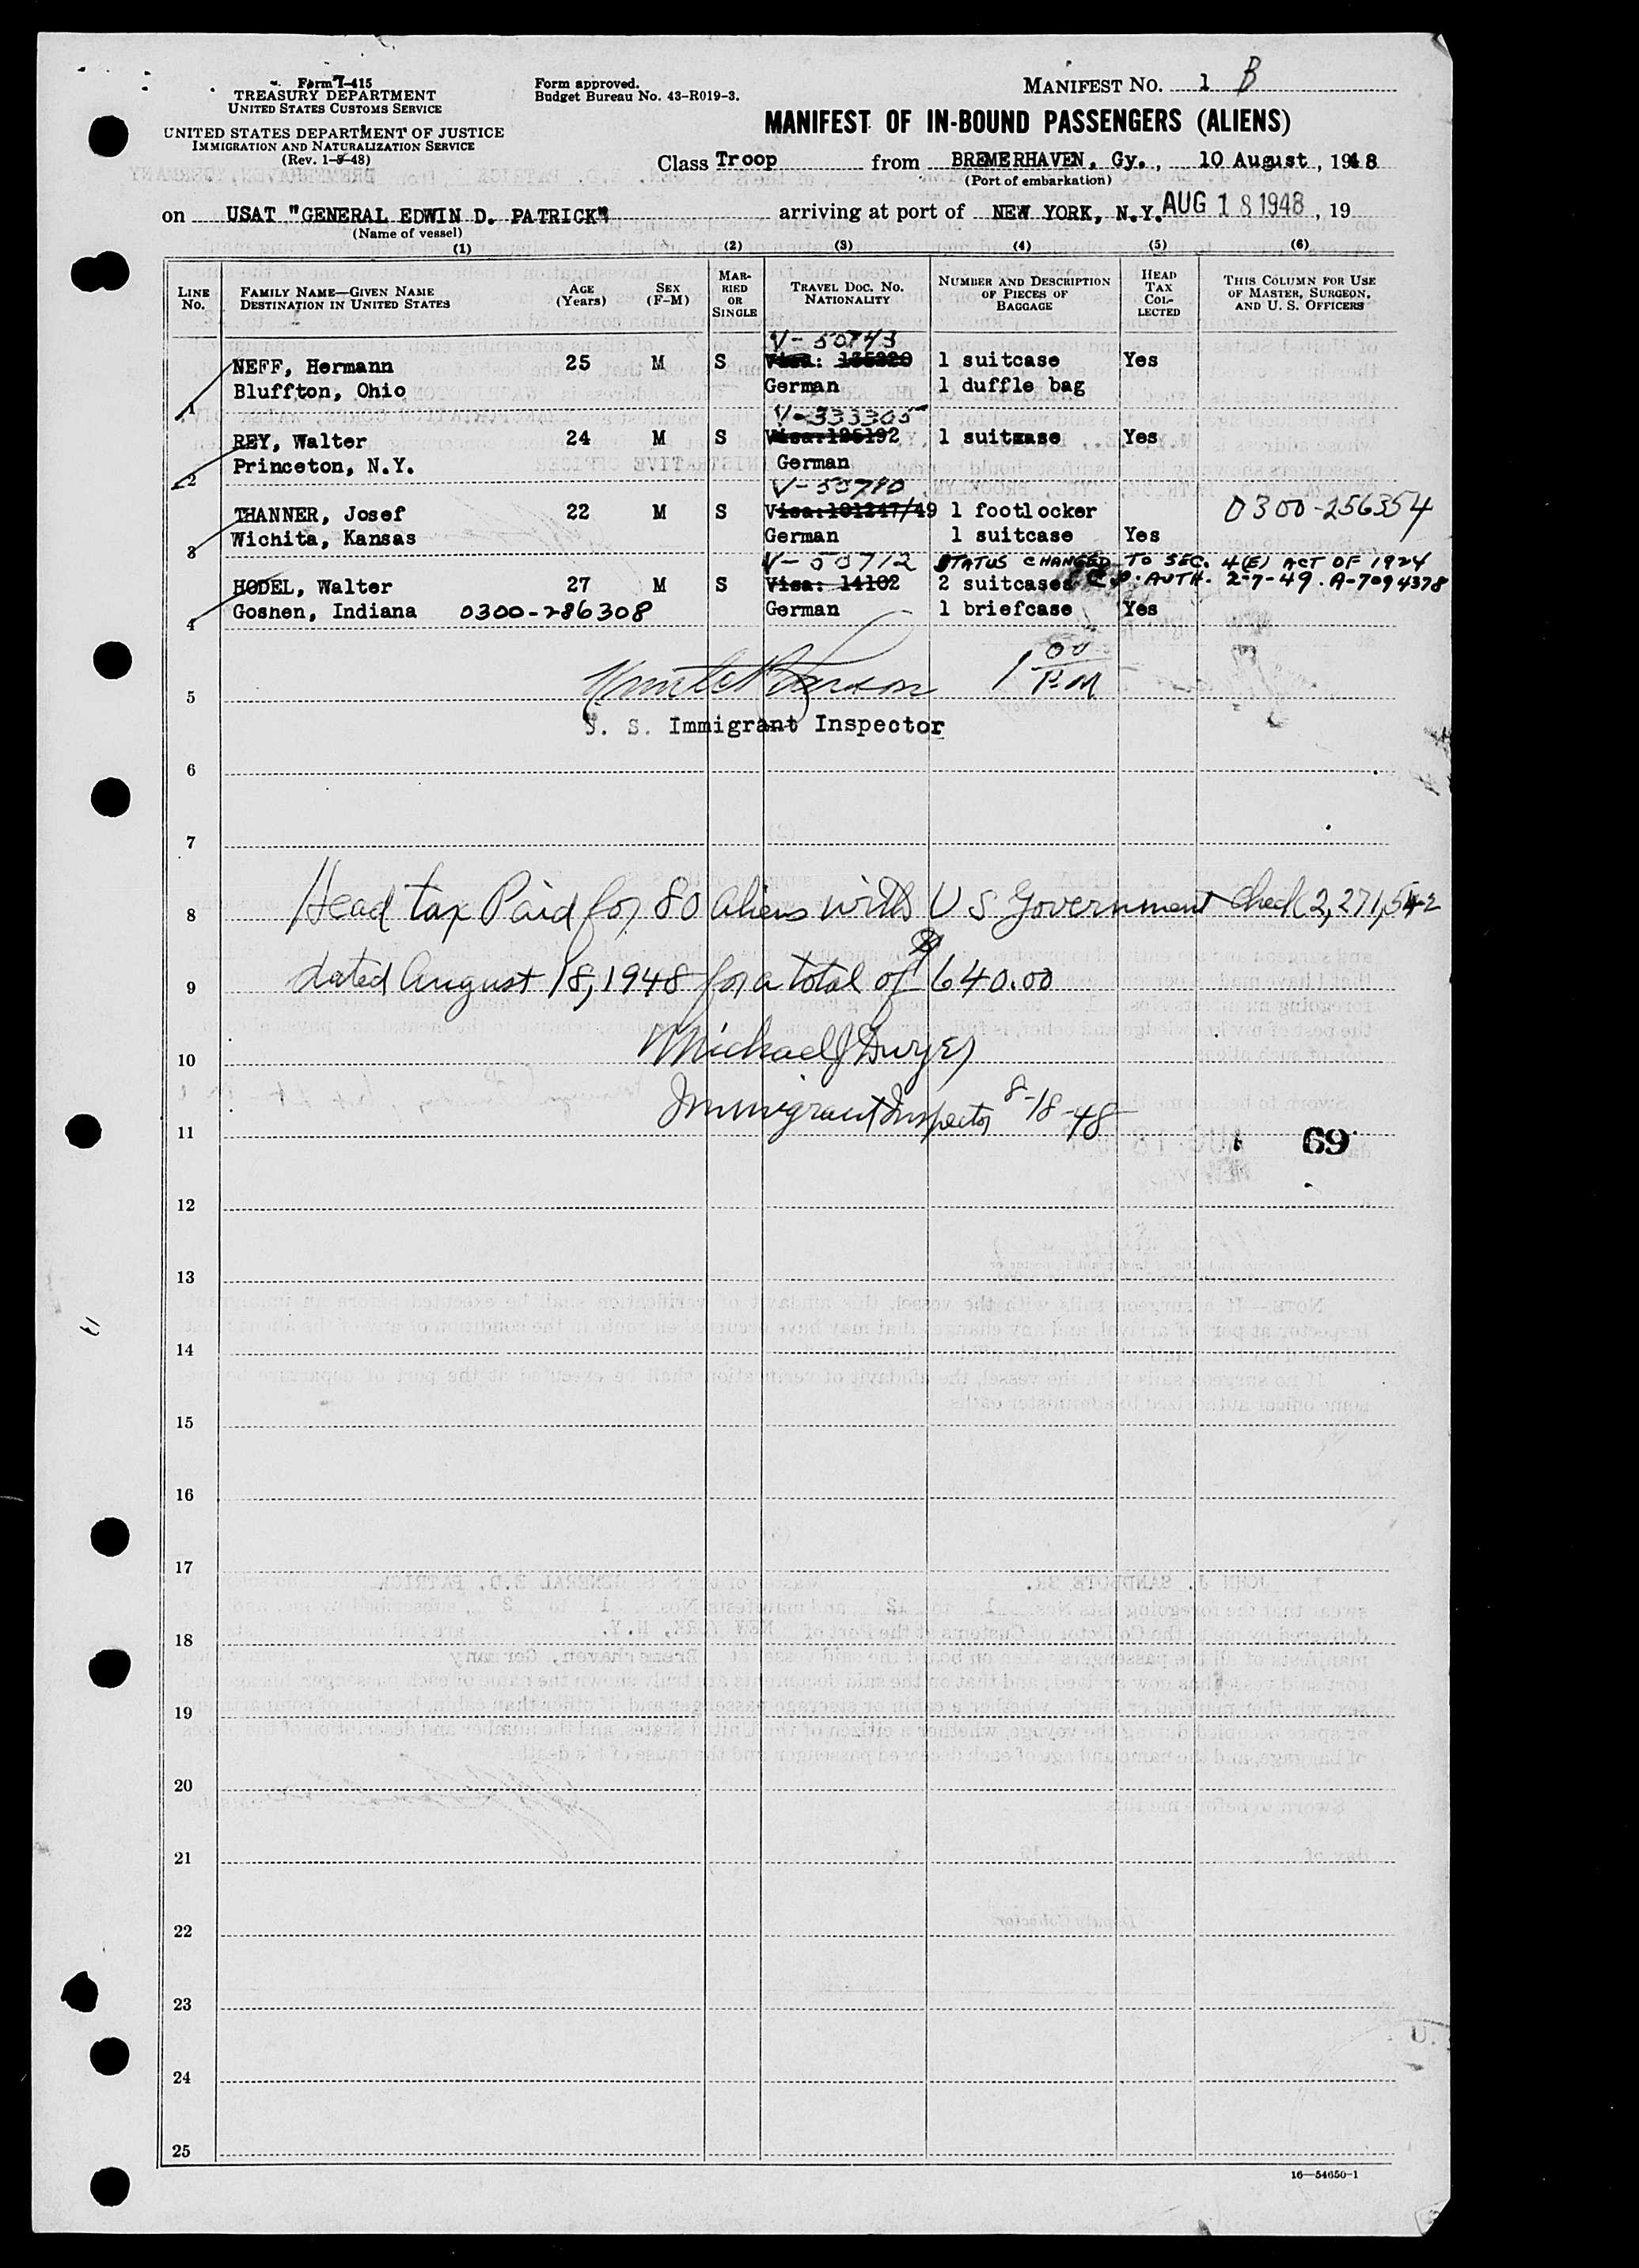 Form I-415
TREASURY DEPARTMENT
UNITED STATES CUSTOMS SERVICE
UNITED STATES DEPARTMENT OF JUSTICE
IMMIGRATION AND NATURALIZATION SERVICE
(Rev. 1-8-48)
Form approved.
Budget Bureau No. 43-R019-3.
MANIFEST NO. 1 B
MANIFEST OF IN-BOUND PASSENGERS (ALIENS)
Class Troop from BREMERHAVEN, Gy., 10 August, 1948
(Port of embarkation)
on USAT "GENERAL EDWIN D. PATRICK" arriving at port of NEW YORK, N.Y. AUG 18 1948, 19
(Name of vessel)
(1) (2) (3) (4) (5) (6)
LINE NO. FAMILY NAME—GIVEN NAME DESTINATION IN UNITED STATES AGE (Years) SEX (F-M) MARRIED OR SINGLE TRAVEL DOC. NO. NATIONALITY NUMBER AND DESCRIPTION OF PIECES OF BAGGAGE HEAD TAX COLLECTED THIS COLUMN FOR USE OF MASTER, SURGEON, AND U. S. OFFICERS
V-50743
NEFF, Hermann 25 M S Visa: 1 suitcase Yes
Bluffton, Ohio German 1 duffle bag
1
V-333305
REY, Walter 24 M S Visa:125192 1 suitcase Yes
Princeton, N.Y. German
2
V-50710
THANNER, Josef 22 M S Visa:101247/49 1 footlocker 0300-256354
Wichita, Kansas German 1 suitcase Yes
3
V-50712 STATUS CHANGED TO SEC. 4(E) ACT OF 1924
HODEL, Walter 27 M S Visa: 14102 2 suitcases C.O. AUTH. 2-7-49. A-7094378
Goshen, Indiana 0300-286308 German 1 briefcase Yes
4
1 00 P.M
5
U. S. Immigrant Inspector
6
7
8 Head tax Paid for 80 Aliens with U S Government Check 2,271,542
9 dated August 18, 1948 for a total of $640.00
10 Michael J Dwyer
11 Immigrant Inspector 8-18-48
69
12
13
14
15
16
17
18
19
20
21
22
23
24
25
16—54650-1